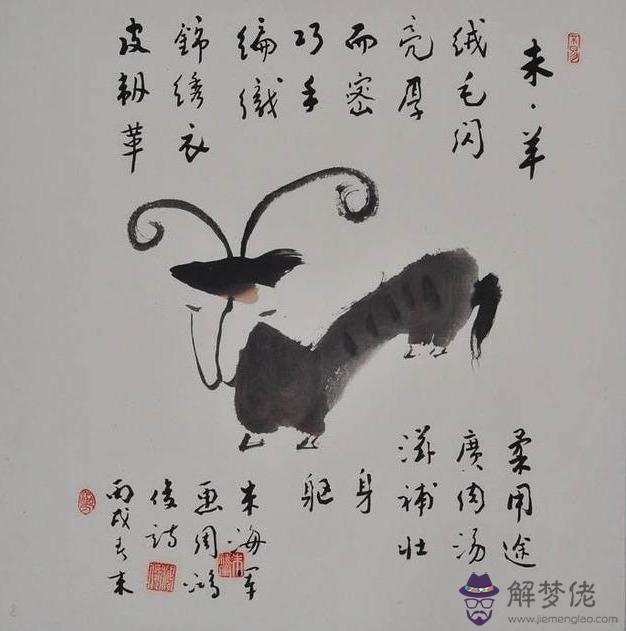 未·羊
绒毛闪
亮厚
而密
巧手
编織
錦绣衣
皮韌革
柔用途
廣肉汤
滋補壮
身
躯
朱海军
画周鴻
俊詩
丙戌春末
解梦佬
www.jiemenglao.com